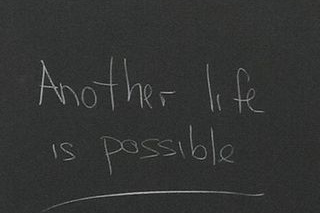 Another life
is possible